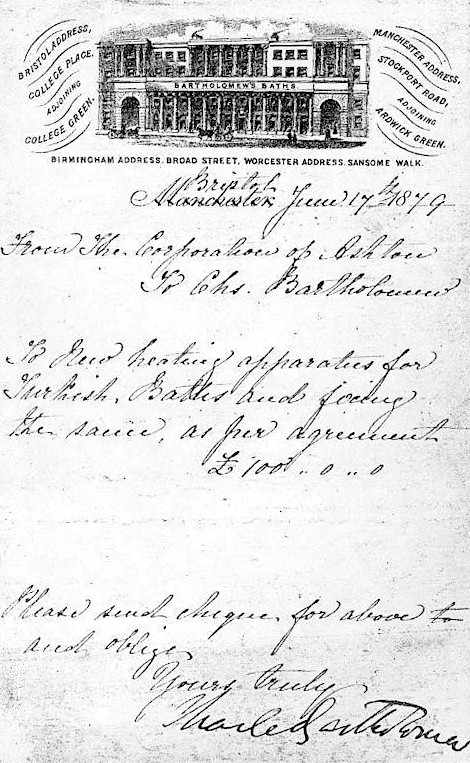 BRISTOL ADDRESS,
COLLEGE PLACE,
ADJOINING
COLLEGE GREEN.
BARTHOLOMEW'S BATHS
MANCHESTER ADDRESS,
STOCKPORT ROAD,
ADJOINING
ARDWICK GREEN.
BIRMINGHAM ADDRESS. BROAD STREET, WORCESTER ADDRESS. SANSOME WALK.
Bristol
Manchester June 17th 1879
From The Corporation of Ashton
To Chs. Bartholomew
To New heating apparatus for
Turkish, Baths and fixing
the same, as per agreement
£100 .. 0 .. 0
Please send cheque for above to
and oblige
Yours truly
Charles Bartholomew